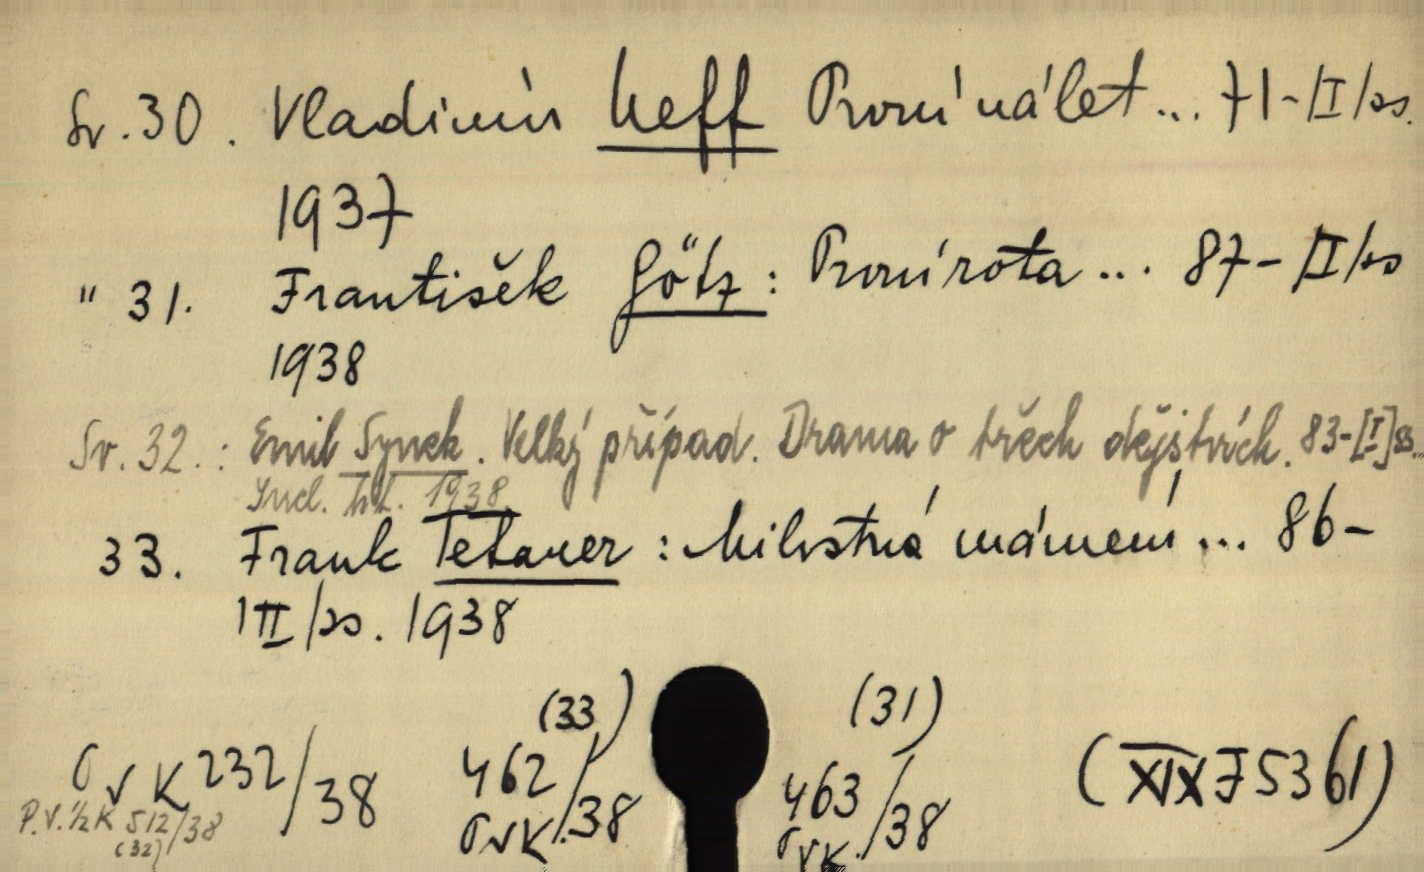 Sv. 30. Vladimír Neff První nálet... 71-/I/ss.
1937
" 31. František Götz: První rota... 87-/I/ss
1938
Sv. 32.: Emil Synek. Velký případ. Drama o třech dějstvích. 83-[I]ss.
Incl. tit. 1938.
33. Frank Tetauer: Milostná mámení... 86-
/II/ss. 1938
(33) (31)
O V K 232/38 462/38 463/38 (XIX J 5361)
OVK. OVK.
P.V. ½ K 512/38
(32)